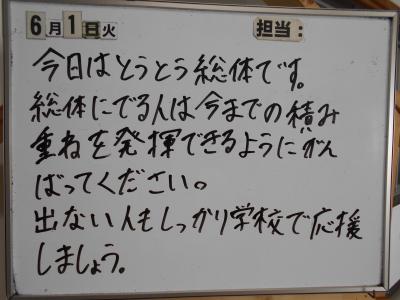 6月1日火 担当：
今日はとうとう総体です。
総体にでる人は今までの積み
重ねを発揮できるようにがん
ばってください。
出ない人もしっかり学校で応援
しましょう。